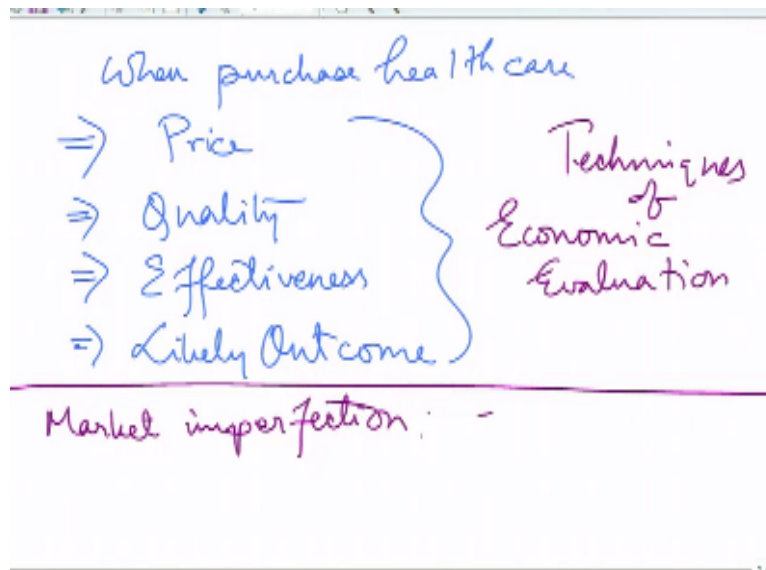 When purchase healthcare
⇒ Price
⇒ Quality
⇒ Effectiveness
⇒ Likely Outcome
Techniques
of
Economic
Evaluation
Market imperfection: -